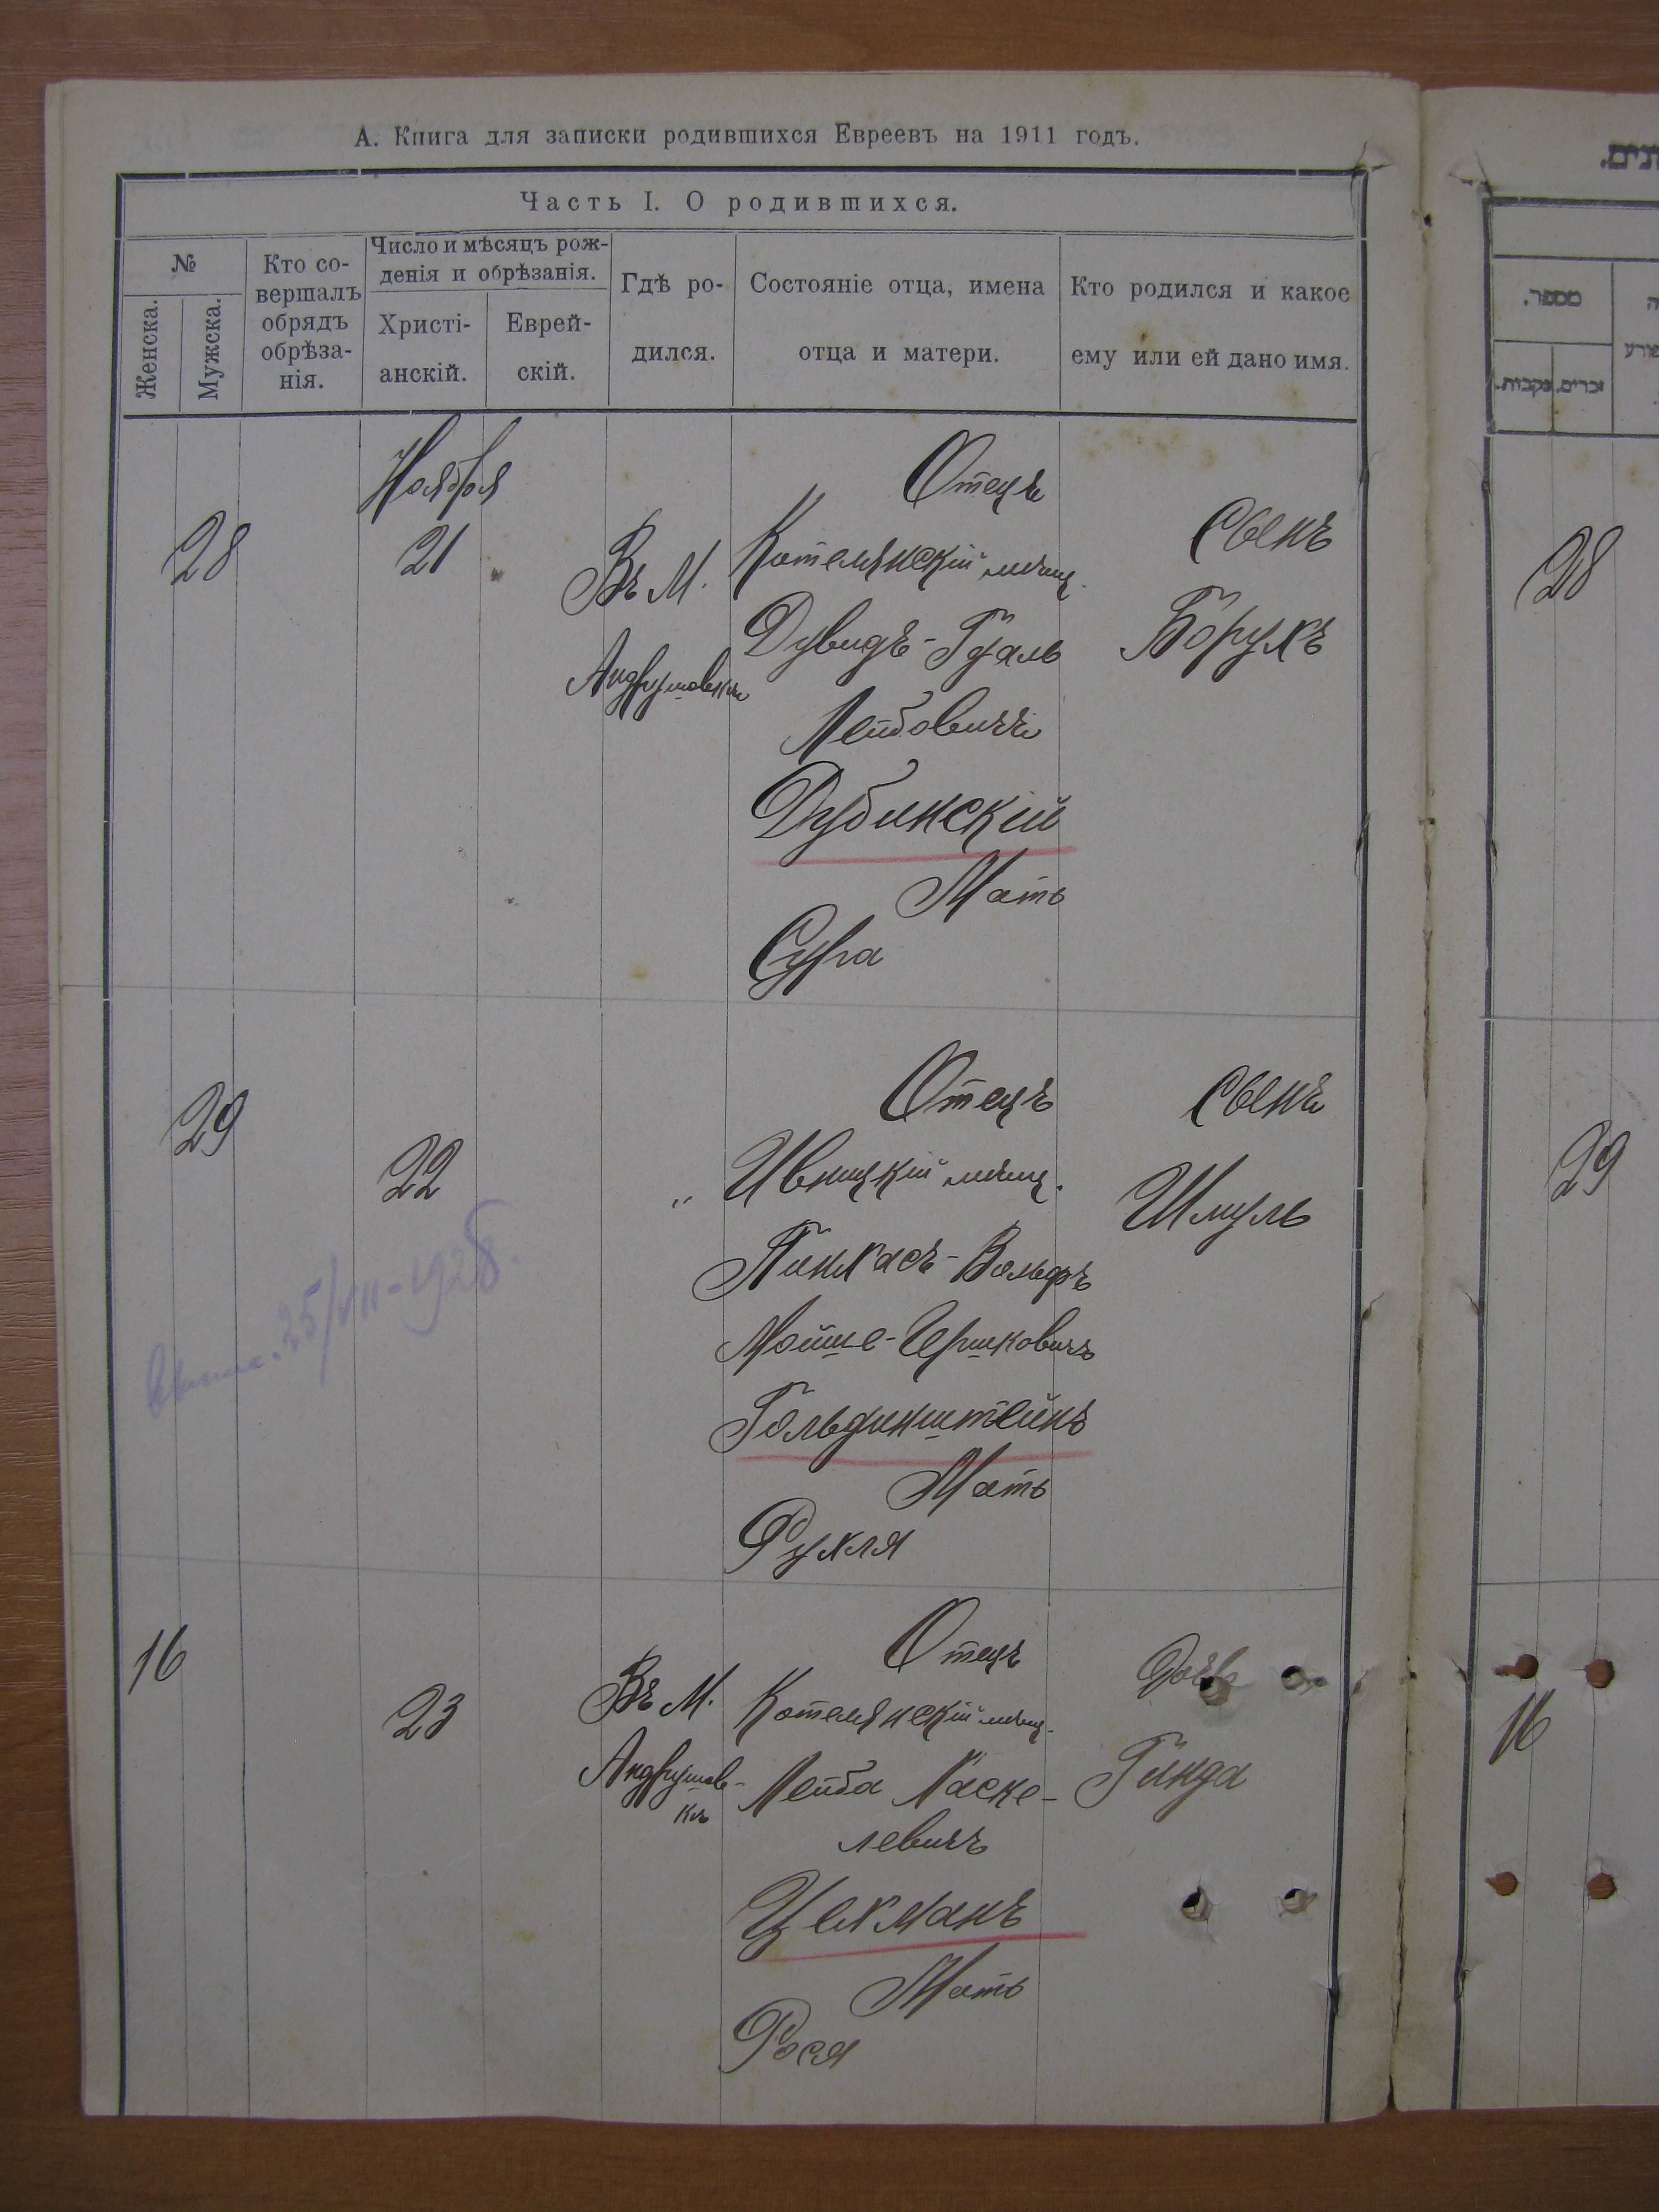 А. Книга для записки родившихся Евреевъ на 1911 годъ.
Часть I. О родившихся.
№
Женска.
Мужска.
Кто со-
вершалъ
обрядъ
обрѣза-
нія.
Число и мѣсяцъ рож-
денія и обрѣзанія.
Христі-
анскій.
Еврей-
скій.
Гдѣ ро-
дился.
Состояніе отца, имена
отца и матери.
Кто родился и какое
ему или ей дано имя.
Ноября
28
21
Въ М.
Андрушовкѣ
Отецъ
Котелянскій мѣщ.
Дувидъ-Гдаль
Лейбовичъ
Дубинскій
Мать
Сура
Сынъ
Борухъ
29
22
"
Отецъ
Ивницкій мѣщ.
Пинхасъ-Вольфъ
Мойше-Гершковичъ
Гольдинштейнъ
Мать
Рухля
Сынъ
Шмуль
25/VII-1928.
16
23
Въ М.
Андрушов-
кѣ
Отецъ
Котелянскій мѣщ.
Лейба Хаске-
левичъ
Цехманъ
Мать
Рося
Дочь
Гинда
מספר.
זכרים.
נקבות.
28
29
16